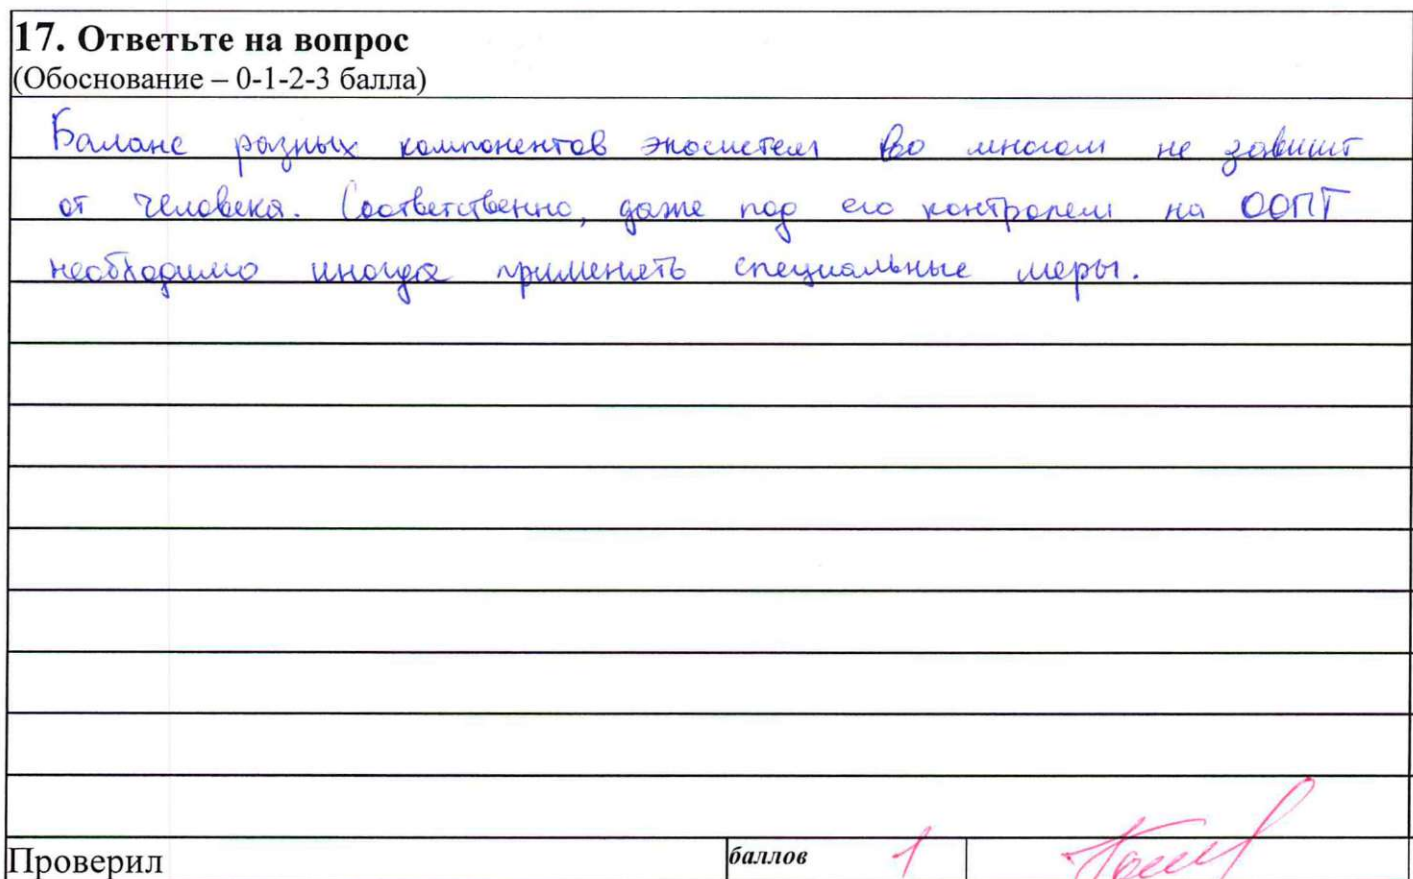 17. Ответьте на вопрос
(Обоснование – 0-1-2-3 балла)
Баланс разных компонентов экосистем во многом не зависит
от человека. Соответственно, даже под его контролем на ООПТ
необходимо иногда применять специальные меры.
Проверил баллов 1